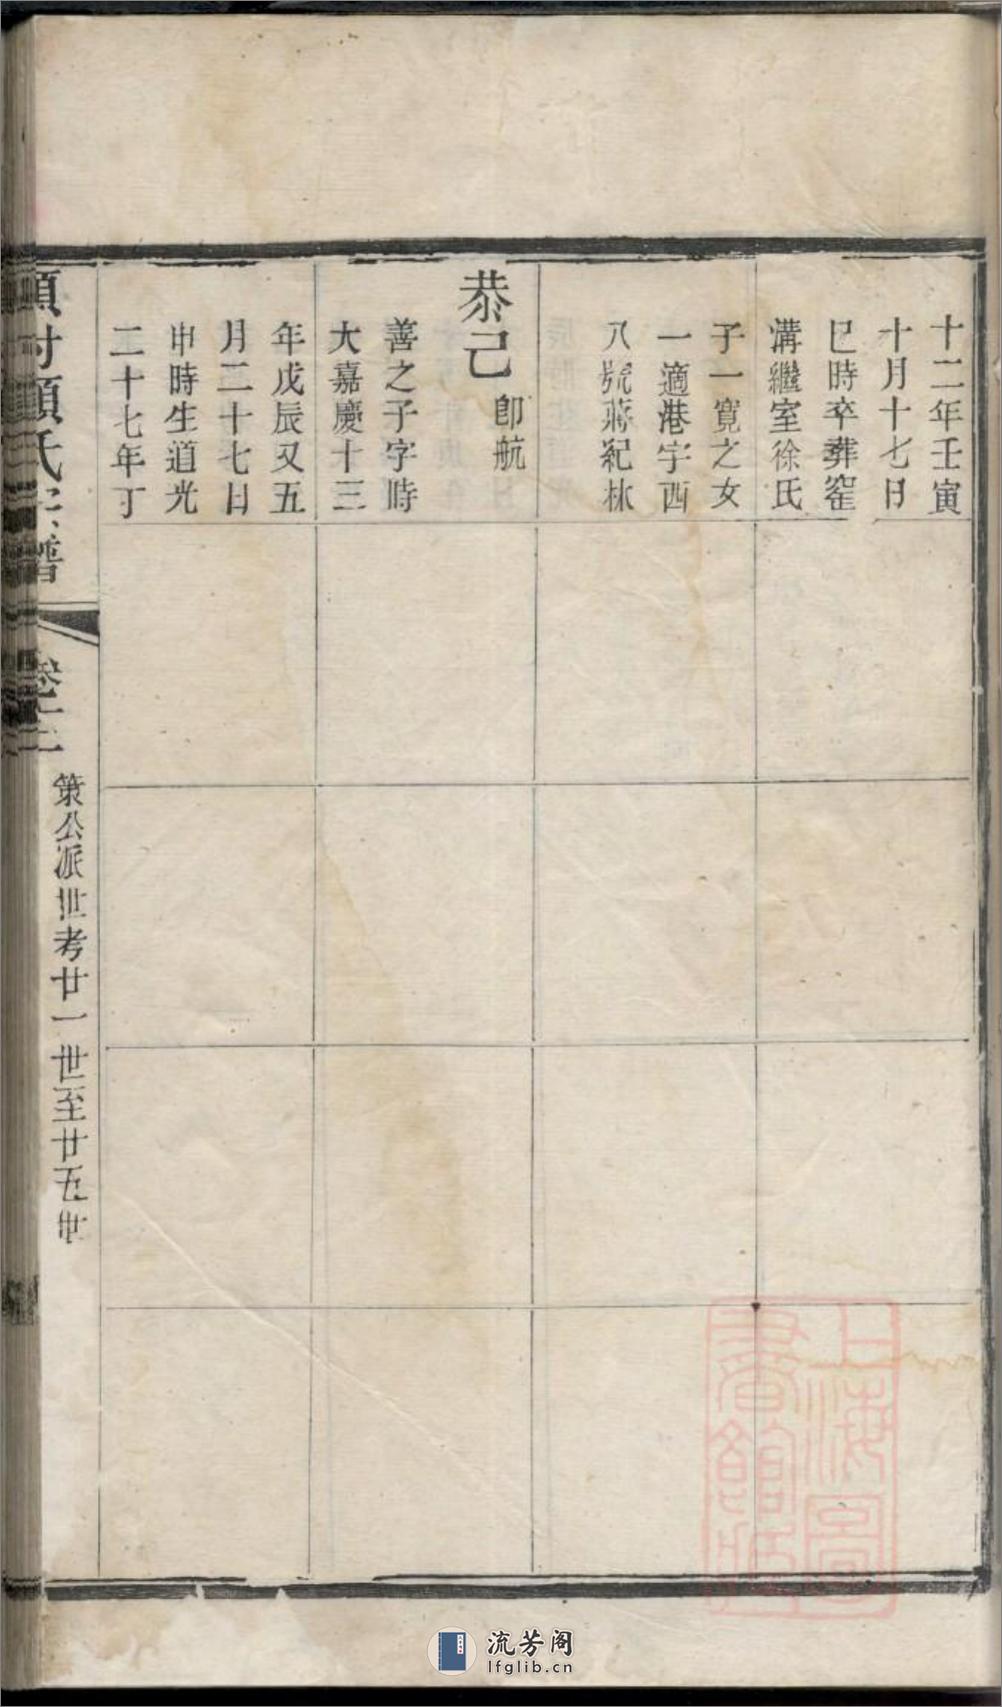 十二年壬寅
十月十七日
巳時卒葬窑
溝繼室徐氏
子一寛之女
一適港字西
八號蔣紀林
恭己 卽航
善之子字時
大嘉慶十三
年戊辰又五
月二十七日
申時生道光
二十七年丁
顧氏宗譜
策公派世考廿一世至廿五世
上海圖書館藏
流芳阁
lfglib.cn